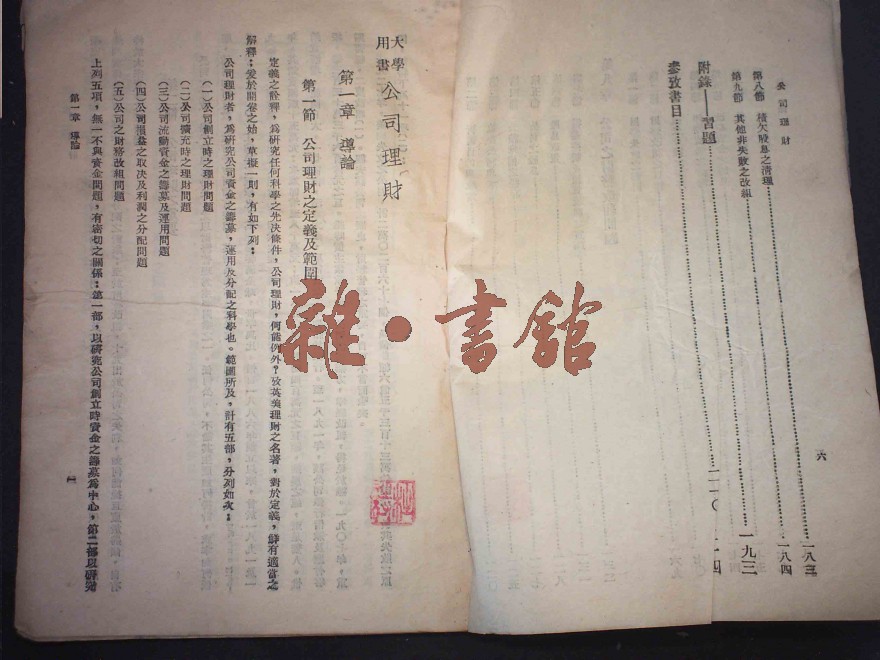 公司理財
第八節 積欠股息之清理……一八三
第九節 其他非失敗之改組……一八四
附錄——習題……一九三
參攷書目……二一四
六
大學用書 公司理財
第一章 導論
第一節 公司理財之定義及範圍
定義之詮釋,爲研究任何科學之先決條件,公司理財,何能例外?攷英美理財之名著,對於定義,鮮有適當之
解釋;爰於開卷之始,草擬一則,有如下列:
公司理財者,爲研究公司資金之籌募,運用及分配之科學也。範圍所及,計有五部,分列如次:
(一)公司創立時之理財問題
(二)公司擴充時之理財問題
(三)公司流動資金之籌募及運用問題
(四)公司損益之取決及利潤之分配問題
(五)公司之財務改組問題
上列五項,無一不與資金問題,有密切之關係;第一部,以研究公司創立時資金之籌募爲中心,第二部以研究
第一章 導論
雜·書館